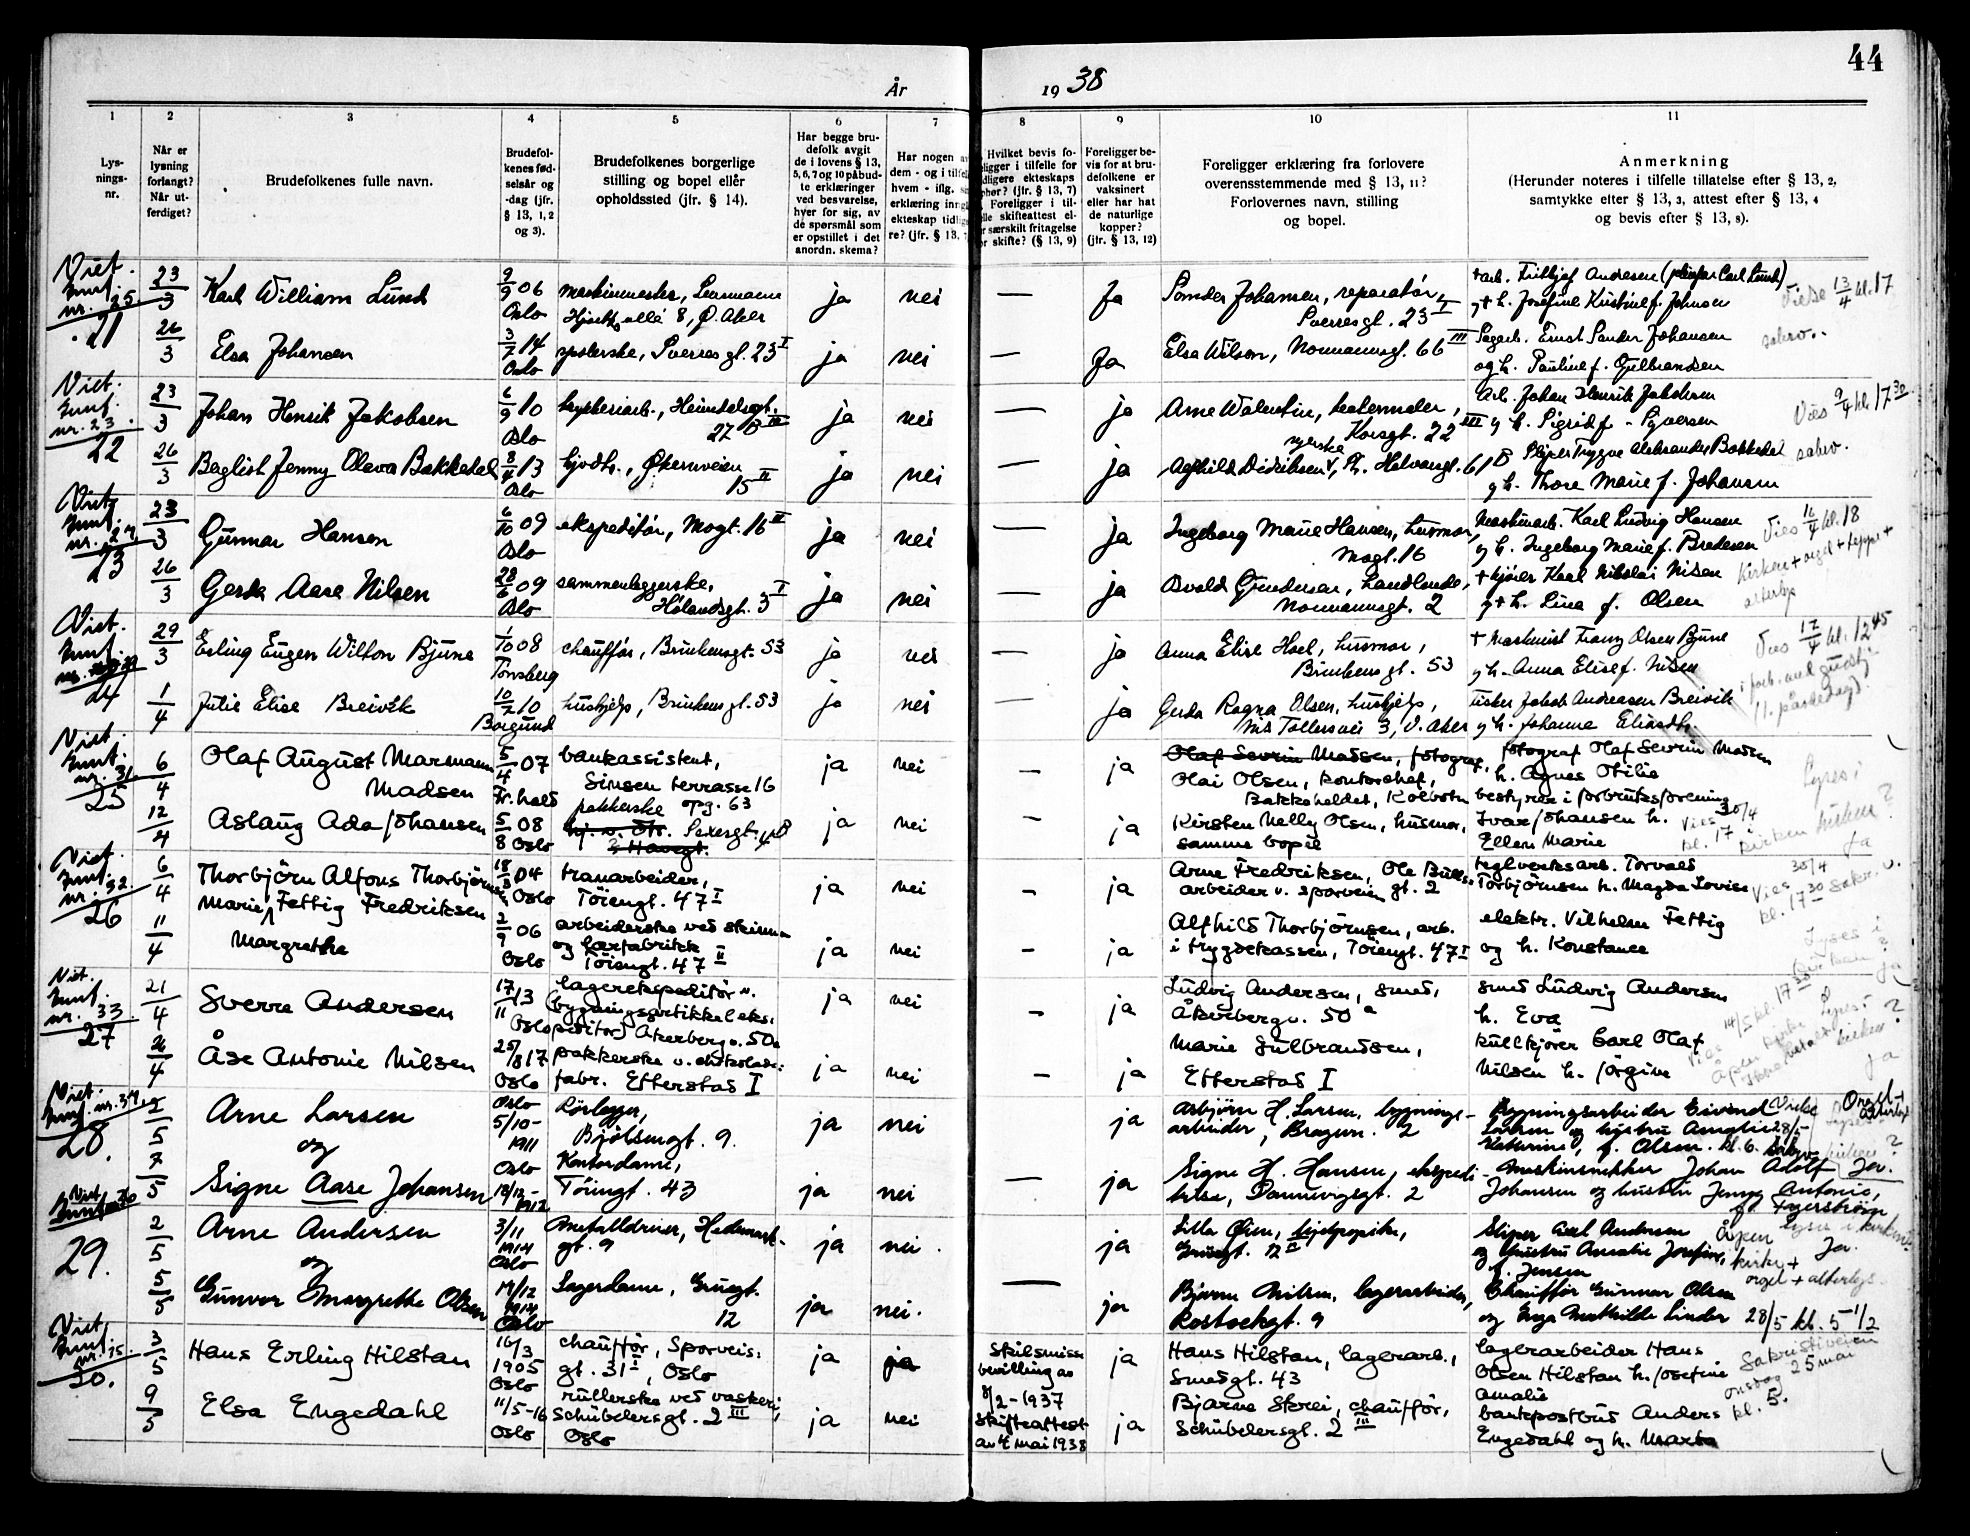 44
År 1938
1 2 3 4 5 6 7 8 9 10 11
Lys-
nings-
nr.
Når er
lysning
forlangt?
Når ut-
ferdiget?
Brudefolkenes fulle navn.
Brudefol-
kenes fød-
selsår og
-dag (jfr.
§ 13, 1, 2
og 3).
Brudefolkenes borgerlige
stilling og bopel eller
opholdssted (jfr. § 14).
Har begge bru-
defolk avgit
de i lovens § 13,
5, 6, 7 og 10 påbud-
te erklæringer
ved besvarelse,
hver for sig, av
de spørsmål som
er opstillet i det
anordn. skema?
Har nogen
dem - og i tilfe
hvem - iflg.
erklæring inng
ekteskap tidlig
re? (jfr. § 13,
Hvilket bevis fo-
eligger i tilfelle for
dligere ekteskaps
phør? (jfr. § 13, 7)
Foreligger i til-
lle skifteattest el-
r særskilt fritagelse
r skifte? (§ 13, 9)
Foreligger be-
vis for at bru-
defolkene er
vaksinert
eller har hat
de naturlige
kopper?
(jfr. § 13, 12)
Foreligger erklæring fra forlovere
overensstemmende med § 13, 11?
Forlovernes navn, stilling
og bopel.
Anmerkning
(Herunder noteres i tilfelle tillatelse efter § 13, 2,
samtykke efter § 13, 3, attest efter § 13, 4
og bevis efter § 13, 8).
Viet.
nr. 25
21
23/3 Karl William Lund 9/9 06 Oslo
Hjorths allé 8, Ø. Aker
ja nei — Ja
Sander Johansen, reparatør,
Sverresgt. 23 I
Vies 13/4 kl. 17
26/3 Elsa Johansen 3/7 14 Oslo
spolerske, Sverresgt. 23 I
ja nei — Ja
Elsa Wilson, Normannsgt. 66 III
Fagarb. Ernst Sander Johansen
og h. Pauline f. Gulbrandsen
sakr.
Viet.
nr. 23
22
23/3 Johan Henrik Jakobsen 6/9 10 Oslo
27 B III
ja nei — ja
Arne Walentin,
Korsgt. 22 III
Arb. Johan Henrik Jakobsen
og h. Sigrid f. Syversen
Vies 9/4 kl. 17 30
26/3 Jenny Olava Bakkedal 8/4 13 Oslo
Økernveien
15 II
ja nei — ja
syerske
Aghild Didriksen, Th. Halvorsgt. 61 B
Sliper Trygve Aleksander Bakkedal
og h. Thora Marie f. Johansen
sakr.
Viet
nr. 27
23
23/3 Gunnar Hansen 6/10 09 Oslo
ekspeditør, Mogt. 16 II
ja nei — ja
Ingeborg Marie Hansen, husmor,
Mogt. 16
Maskinarb. Karl Ludvig Hansen
og h. Ingeborg Marie f. Bredesen
Vies 16/4 kl. 18
26/3 Gerda Aase Nilsen 28/6 09 Oslo
sammenleggerske,
Hølandsgt. 3 I
ja nei — ja
Osvald Gundersen,
Normannsgt. 2
+ kjører Karl Nikolai Nilsen
og + h. Lina f. Olsen
kirken + orgel + teppe +
alterlys
Viet.
24
29/3 Erling Eugen Wilton Bjune 1/10 08 Tønsberg
chauffør, Brinkensgt. 53
ja nei — ja
Anna Elise Hoel, husmor,
Brinkensgt. 53
+ Maskinist Franz Olsen Bjune
og h. Anna Elise f. Nilsen
Vies 17/4 kl. 12 45
1/4 Julie Elise Breivik 10/7 10 Borgund
hushjelp, Brinkensgt. 53
ja nei — ja
Gerda Ragna Olsen, hushjelp,
Nils Tollersvei 3, V. Aker
Fisker Jakob Andreasen Breivik
og h. Johanna Eliasdtr.
i forb. med gudstj.
11. påskedag).
Viet.
nr. 31.
25
6/4 Olaf August Marmann
Madsen 5/4 07 Fr.hald
bankassistent,
Sinsen terrasse 16
opg. 63
ja nei — ja
Olaf Sevrin Madsen, fotograf,
Olai Olsen, kontorchef,
Bakkehaldet, Kolbotn
fotograf Olaf Sevrin Madsen
h. Agnes Otilie
Lyses i
kirken?
ja
12/4 Aslaug Ada Johansen 5/8 08 Oslo
pakkerske
ja nei — ja
Kirsten Nelly Olsen, husmor,
samme bopel
bestyrer i forbruksforening
Ivar Johansen h.
Ellen Marie
Vies 30/4
kl. 17
kirken
Viet.
nr. 32
26
6/4 Thorbjørn Alfons Thorbjørnsen 18/3 04 Oslo
tranarbeider,
Tøiengt. 47 I
ja nei — ja
Arne Fredriksen, Ole Bulls
arbeider v. sporvein gt. 2
teglverksarb. Torvald
Torbjørnsen h. Magda Lovise
Vies 30/4
kl. 17 30 sakr.
11/4 Marie Fettig Fredriksen
Margrethe 2/9 06 Oslo
arbeiderske ved skinn-
og lærfabrikk
Tøiengt. 47 II
ja nei — ja
Alfhild Thorbjørnsen, arb.
i trygdekassen, Tøiengt. 47 I
elektr. Vilhelm Fettig
og h. Konstance
Lyses i
kirken?
ja
Viet.
nr. 33.
27
21/4 Sverre Andersen 17/11 13 Oslo
lagerekspeditør v.
(bygningsartikkel eks.
peditør) Åkerbergv. 50a
ja nei — ja
Ludvig Andersen, smed,
Åkerbergv. 50 a
smed Ludvig Andersen
h. Eva
Vies 14/5 kl. 17 30
26/4 Åse Antonie Nilsen 25/8 17 Oslo
pakkerske v. chokolade-
fabr. Etterstad I
ja nei — ja
Marie Gulbrandsen,
Etterstad I
kullkjører Carl Olaf
Nilsen h. Jørgine
Lyses i
kirken?
ja
Viet.
nr. 34.
28.
2/5 Arne Larsen
og
Oslo 5/10-1911
Rørlegger,
Bjølsengt. 9.
ja nei ja
Asbjørn H. Larsen, bygnings-
arbeider, Bragen. 2
Bygningsarbeider Eivind
Larsen og hustru Amalie
Katherine, f. Olsen.
Vielse 28/5 kl. 6.
Orgel +
alterlys
7/5 Signe Aase Johansen Oslo 19/12-1912
Kontordame,
Tøiengt. 43
ja nei — ja
Signe H. Hansen, ekspedi-
trise, Dannevigsgt. 2
Maskinsnekker Johan Adolf
Johansen og hustru Jenny Antonie,
Ja.
Viet
29.
2/5 Arne Andersen
og
3/11 1914 Oslo
Metalldreier, Hedemark-
gt. 9
ja nei. ja
Lilla Øien,
Gruegt. 12 II
Sliper Axel Andersen
og hustru Amalie Josefine,
f. Jensen
Åpen
kirke +
orgel + alterlys.
Lyses i kirken?
Ja.
5/5 Gunvor Margrethe Olsen 19/12 1914 Oslo
Lagerdame, Gruegt.
12
ja nei. — ja
Bjarne Nilsen, lagerarbeider,
Rostockgt. 9
Chauffør Gunnar Olsen
og Inga Mathilde Linder
28/5 kl. 5-1/2
Viet,
nr. 15.
30.
3/5 Hans Erling Hilstan 16/3 1905 Oslo
chauffør, Sporveis-
gt. 31 I, Oslo
ja ja
Skilsmisse
bevilling av
8/2-1937
Skifteattest
av 4 mai 1938
ja
Hans Hilstan, lagerarb.,
Smedgt. 43
lagerarbeider Hans
Olsen Hilstan h. Josefine
Amalie
Sakristiveien
onsdag 25 mai
kl. 5.
9/5 Elsa Engedahl 11/5-16 Oslo
rullerske ved vaskeri,
Schübelersgt. 2 III
Oslo
ja nei ja
Bjarne Skrei, chauffør,
Schübelersgt. 2 III
bankpostbud Anders
Engedahl og h. Marta